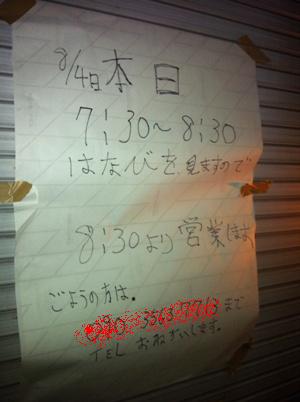 8/4日 本日
7:30〜8:30
はなびを見ますので
8:30より営業します
ごようの方は。
まで
TEL おねがいします。